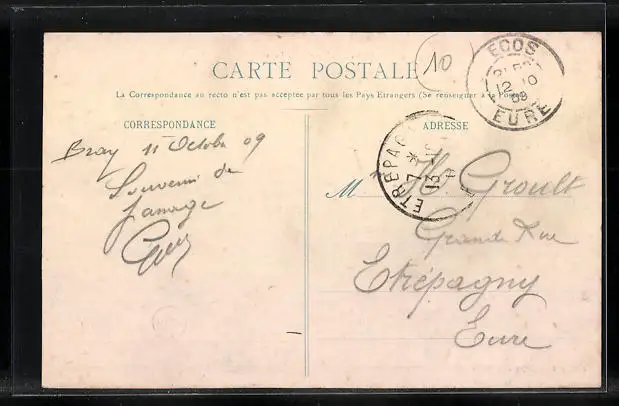 10
CARTE POSTALE
La Correspondance au recto n'est pas acceptée par tous les Pays Etrangers (Se renseigner à la Poste)
CORRESPONDANCE
ADRESSE
ECOS
12 10
09
EURE
ETRÉPAGN
17 *
13
Bray 11 Octobre 09
Souvenir de
M H. Groult
Grande Rue
Etrépagny
Eure